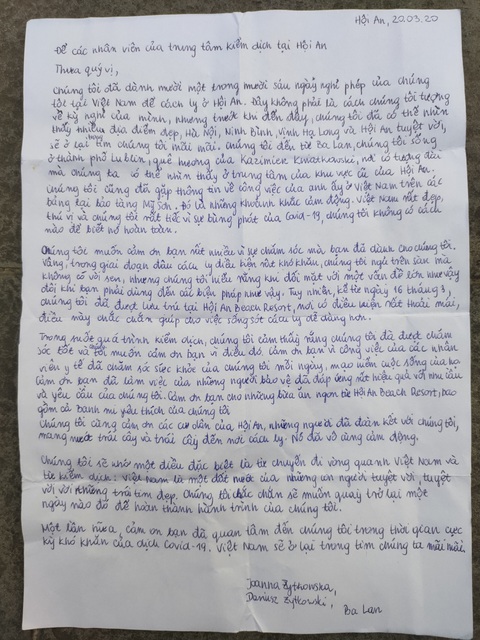 Hội An, 20.03.20
Để các nhân viên của trung tâm kiểm dịch tại Hội An
Thưa quý vị,
Chúng tôi đã dành mười một trong mười sáu ngày nghỉ phép của chúng
tôi tại Việt Nam để cách ly ở Hội An. Đây không phải là cách chúng tôi tưởng
về kỳ nghỉ của mình, nhưng trước khi đến đây, chúng tôi đã có thể nhìn
thấy nhiều địa điểm đẹp, Hà Nội, Ninh Bình, Vịnh Hạ Long và Hội An tuyệt vời,
sẽ ở lại trong tim chúng tôi mãi mãi. Chúng tôi đến từ Ba Lan, chúng tôi sống
ở thành phố Lublin, quê hương của Kazimierz Kwiatkowski, nơi có tượng đài
mà chúng ta có thể nhìn thấy ở trung tâm của khu vực cũ của Hội An.
Chúng tôi cũng đã gặp thông tin về công việc của anh ấy ở Việt Nam trên các
bảng tại bảo tàng Mỹ Sơn. Đó là những khoảnh khắc cảm động. Việt Nam rất đẹp,
thú vị và chúng tôi rất tiếc vì sự bùng phát của Covid-19, chúng tôi không có cách
nào để kết nó hoàn toàn.
Chúng tôi muốn cảm ơn bạn rất nhiều vì sự chăm sóc mà bạn đã dành cho chúng tôi.
Vâng, trong giai đoạn đầu cách ly điều kiện rất khó khăn, chúng tôi ngủ trên sàn mà
không có vòi sen, nhưng chúng tôi hiểu rằng khi đối mặt với một vấn đề lớn như vậy
đôi khi bạn phải dùng đến các biện pháp như vậy. Tuy nhiên, kể từ ngày 16 tháng 3,
chúng tôi đã được lưu trú tại Hội An Beach Resort, nơi có điều kiện rất thoải mái,
điều này chắc chắn giúp cho việc sống sót cách ly dễ dàng hơn.
Trong suốt quá trình kiểm dịch, chúng tôi cảm thấy rằng chúng tôi đã được chăm
sóc tốt và tôi muốn cảm ơn bạn vì điều đó. Cảm ơn bạn vì công việc của các nhân
viên y tế đã chăm sóc sức khỏe của chúng tôi mỗi ngày, mạo hiểm cuộc sống của họ
Cảm ơn bạn đã làm việc của những người bảo vệ đã đáp ứng rất hiệu quả với nhu cầu
và yêu cầu của chúng tôi. Cảm ơn bạn cho những bữa ăn ngon từ Hội An Beach Resort, bao
gồm cả banh mi yêu thích của chúng tôi
Chúng tôi càng cảm ơn các cư dân của Hội An, những người đã đoàn kết với chúng tôi,
mang nước trái cây và trái cây đến nơi cách ly. Nó đã vô cùng cảm động.
Chúng tôi sẽ nhớ một điều đặc biệt là từ chuyến đi vòng quanh Việt Nam và
từ kiểm dịch: Việt Nam là một đất nước của những con người tuyệt vời, tuyệt
vời với những trái tim đẹp. Chúng tôi chắc chắn sẽ muốn quay trở lại một
ngày nào đó để hoàn thành hành trình của chúng tôi.
Một lần nữa, cảm ơn bạn đã quan tâm đến chúng tôi trong thời gian cực
kỳ khó khăn của dịch Covid-19. Việt Nam sẽ ở lại trong tim chúng ta mãi mãi.
Joanna Żytkowska,
Dariusz Żytkowski,
Ba Lan